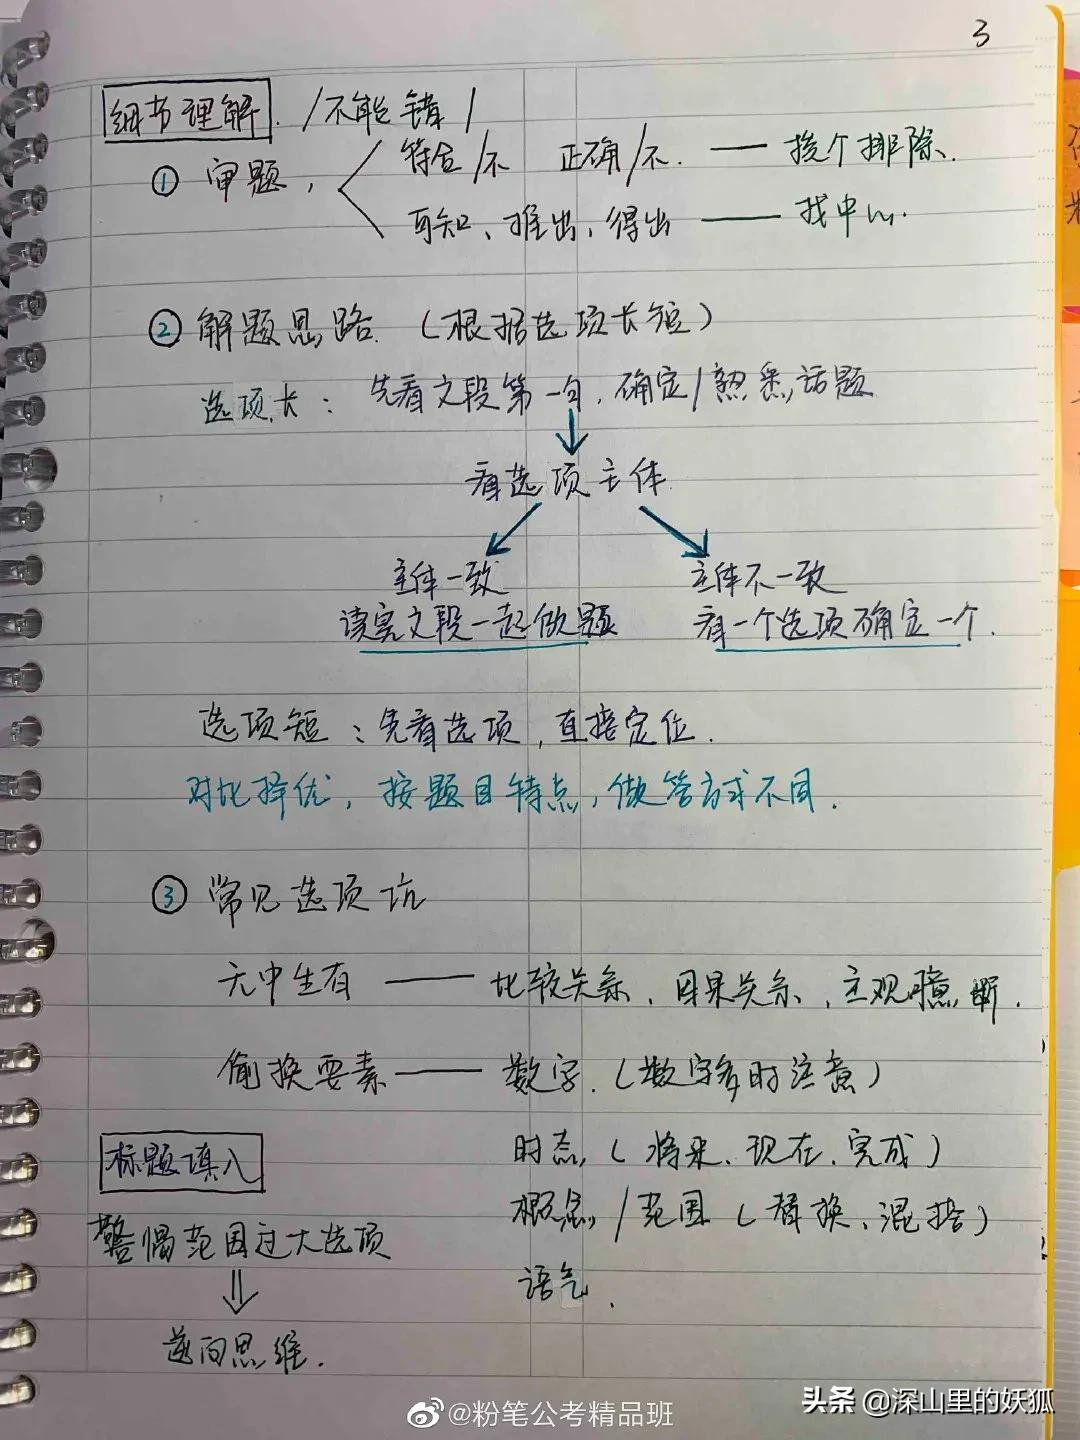 3
细节理解. /不能错/
① 审题, 符合/不 正确/不. — 挨个排除.
可知、推出、得出 — 找中心.
② 解题思路. (根据选项长短)
选项长: 先看文段第一句, 确定/熟悉话题
看选项主体.
主体一致 主体不一致
读完文段一起做题 看一个选项确定一个.
选项短: 先看选项, 直接定位.
对比择优, 按题目特点, 做答方式不同.
③ 常见选项坑
无中生有 — 比较关系、因果关系, 主观臆断.
偷换要素 — 数字. (数字多时注意)
时态, (将来、现在、完成)
标题填入
概念/范围 (替换、混搭)
警惕范围过大选项
语气.
逆向思维.
@粉笔公考精品班
头条 @深山里的妖狐